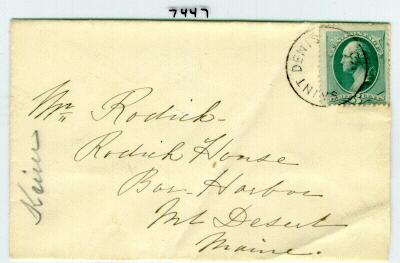 7447
SAINT DENIS
Mr Rodick
Rodick House
Bar Harbor
Mt Desert
Maine.